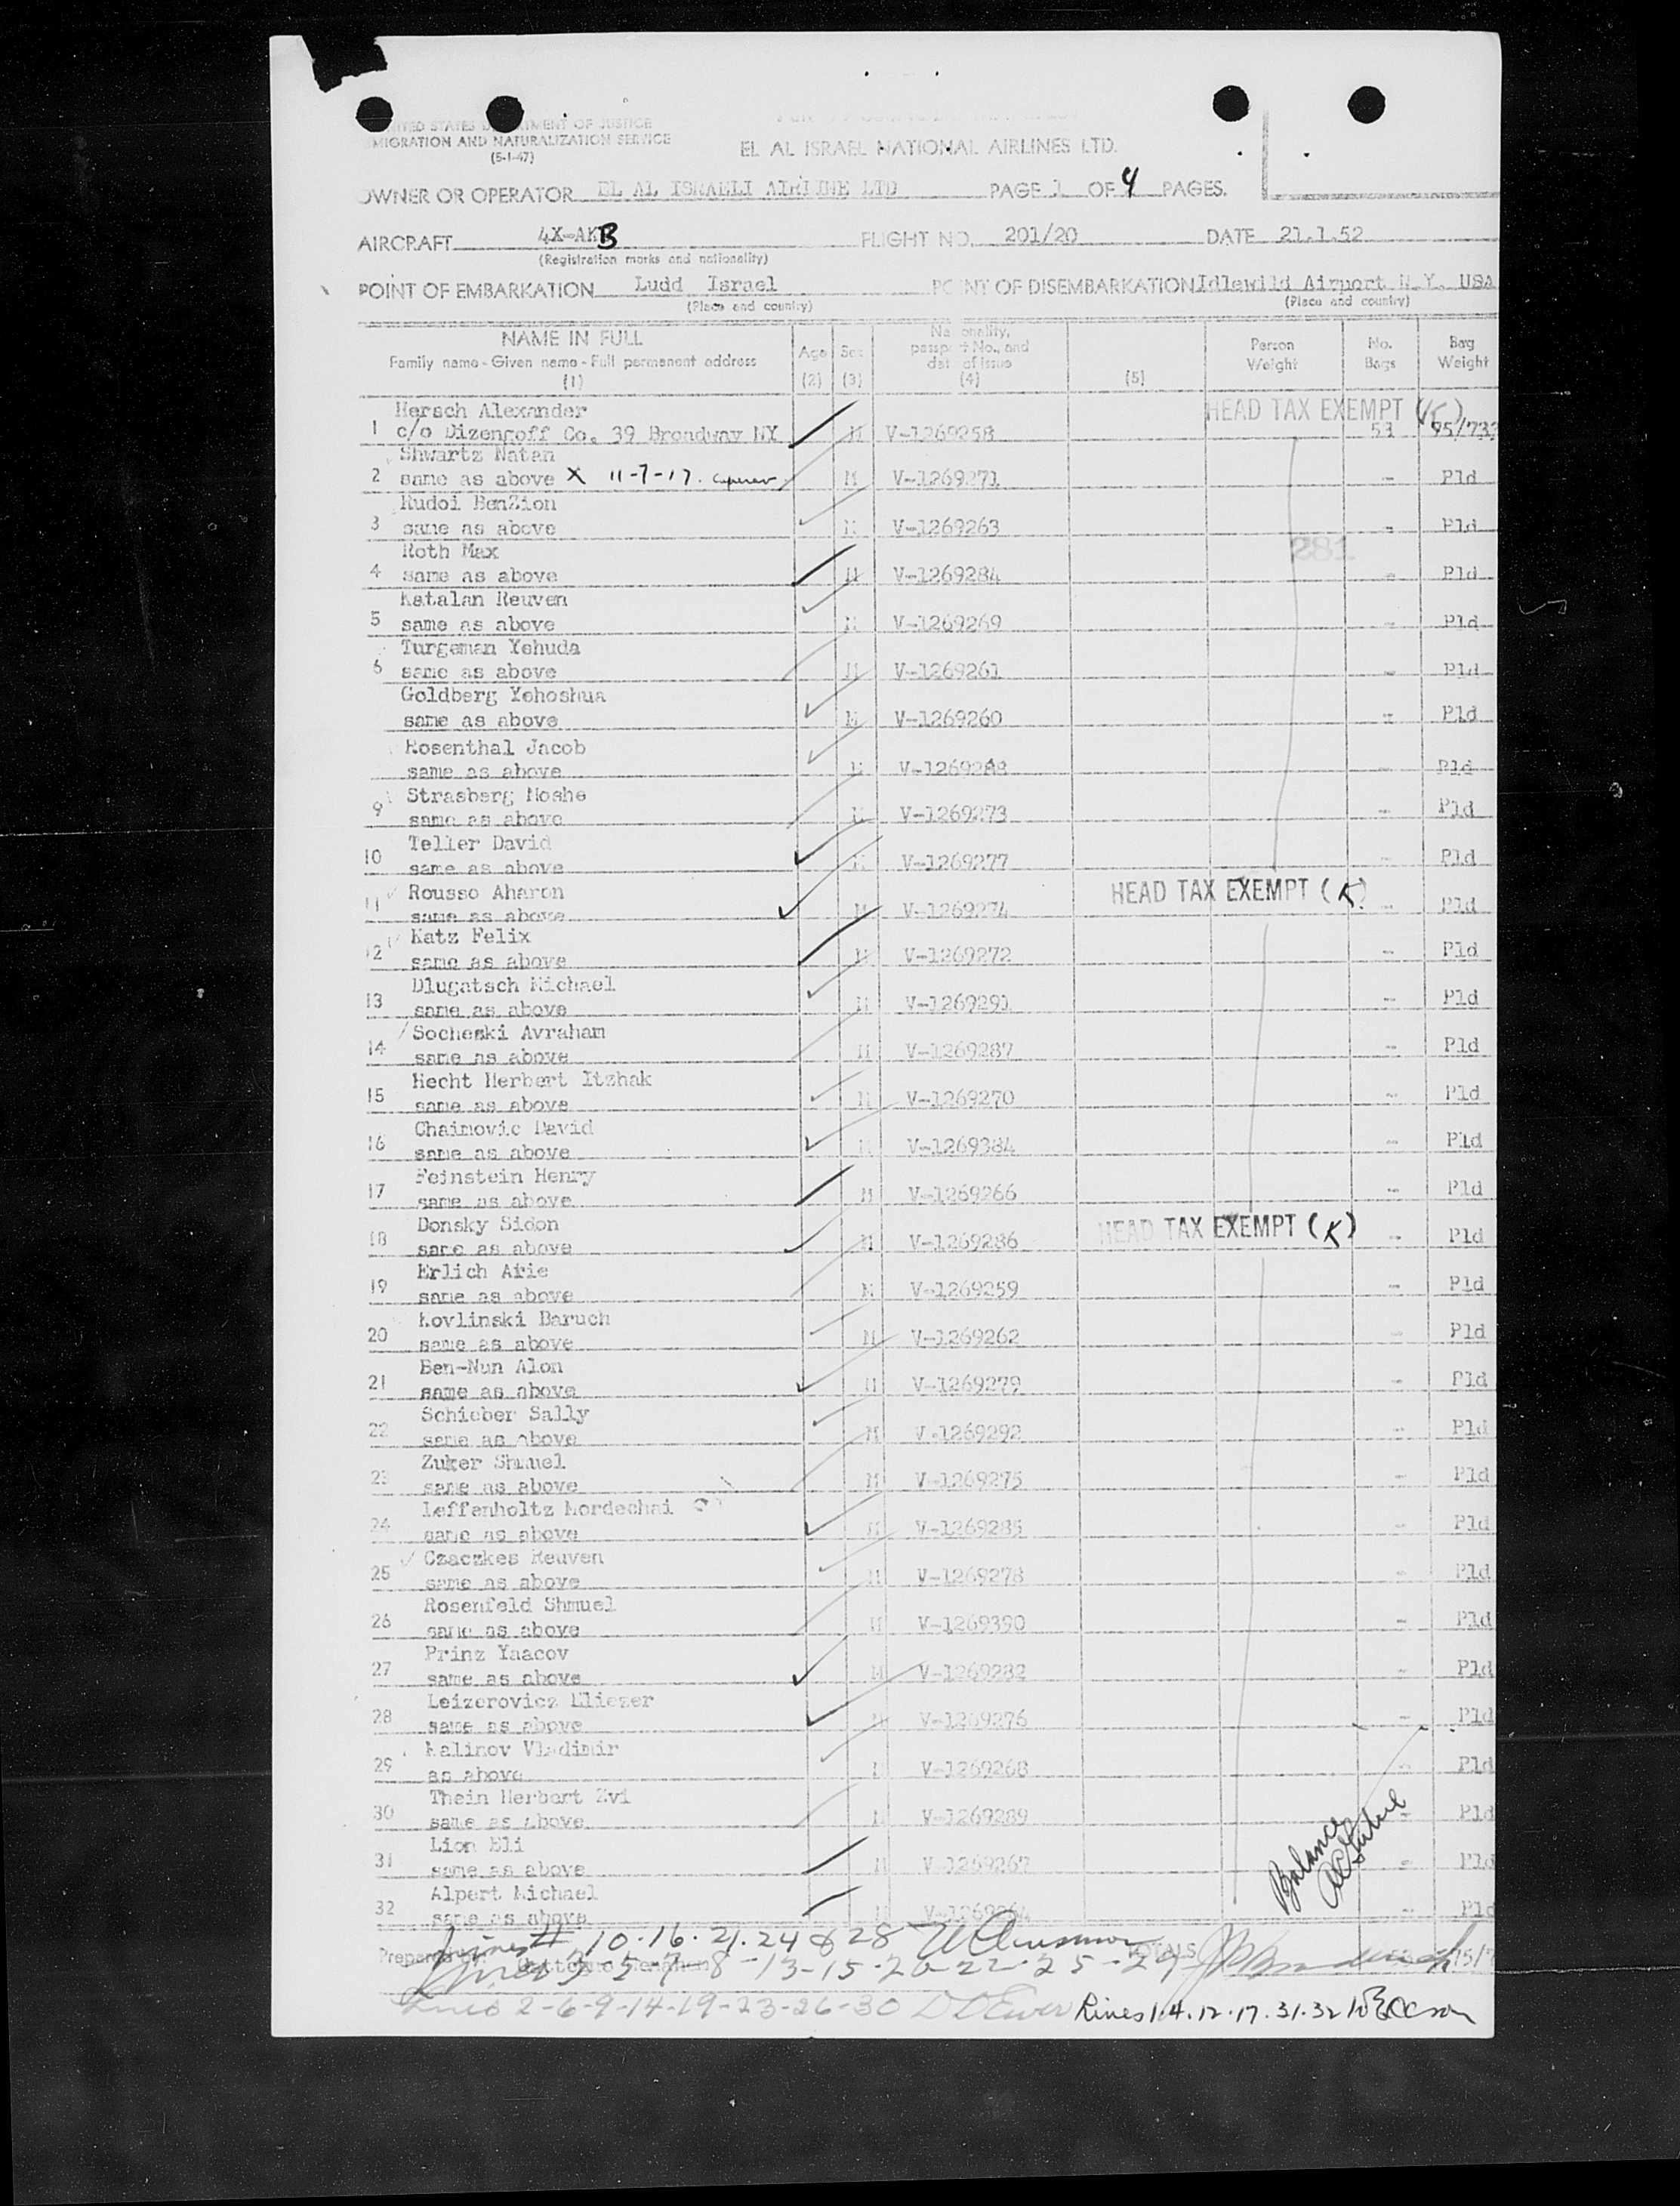 UNITED STATES DEPARTMENT OF JUSTICE
IMMIGRATION AND NATURALIZATION SERVICE
(5-1-47)
EL AL ISRAEL NATIONAL AIRLINES LTD.
OWNER OR OPERATOR EL AL ISRAELI AIRLINE LTD PAGE 1 OF 4 PAGES.
AIRCRAFT 4X-AKB FLIGHT NO. 201/20 DATE 21.1.52
(Registration marks and nationality)
POINT OF EMBARKATION Ludd Israel POINT OF DISEMBARKATION Idlewild Airport N.Y. USA
(Place and country) (Place and country)
NAME IN FULL Age Sex Nationality, Person No. Bag
Family name - Given name - Full permanent address passport No., and Weight Bags Weight
date of issue
(1) (2) (3) (4) (5)
Hersch Alexander HEAD TAX EXEMPT (K)
1 c/o Dizengoff Co. 39 Broadway NY M V-1269258 53 95/733
Shwartz Natan
2 same as above X 11-7-17. M V-1269271 - Pld
Rudoi BenZion
3 same as above M V-1269263 - Pld
Roth Max 281
4 same as above M V-1269284 - Pld
Katalan Reuven
5 same as above M V-1269269 - Pld
Turgeman Yehuda
6 same as above M V-1269261 - Pld
Goldberg Yehoshua
same as above M V-1269260 - Pld
Rosenthal Jacob
same as above M V-1269288 - Pld
Strasberg Moshe
9 same as above M V-1269273 - Pld
Teller David
10 same as above M V-1269277 - Pld
Rousso Aharon HEAD TAX EXEMPT (K)
11 same as above M V-1269274 - Pld
Katz Felix
12 same as above M V-1269272 - Pld
Dlugatsch Michael
13 same as above M V-1269291 - Pld
Socheski Avraham
14 same as above M V-1269287 - Pld
Hecht Herbert Itzhak
15 same as above M V-1269270 - Pld
Chaimovic David
16 same as above M V-1269384 - Pld
Feinstein Henry
17 same as above M V-1269266 - Pld
Donsky Sidon HEAD TAX EXEMPT (K)
18 same as above M V-1269286 - Pld
Erlich Arie
19 same as above M V-1269259 - Pld
Kovlinski Baruch
20 same as above M V-1269262 - Pld
Ben-Nun Alon
21 same as above M V-1269279 - Pld
Schieber Sally
22 same as above M V-1269292 - Pld
Zuker Shmuel
23 same as above M V-1269275 - Pld
Leffenholtz Mordechai
24 same as above M V-1269285 - Pld
Czaczkes Reuven
25 same as above M V-1269278 - Pld
Rosenfeld Shmuel
26 same as above M V-1269390 - Pld
Prinz Yaacov
27 same as above M V-1269282 - Pld
Leizerovicz Eliezer
28 same as above M V-1269276 - Pld
Kalinov Vladimir
29 as above M V-1269268 - Pld
Thein Herbert Zvi
30 same as above M V-1269289 - Pld
Lion Eli
31 same as above M V-1269267 - Pld
Alpert Michael
32 same as above M V-1269264 Pld
Balance
Lines # 10-16-21-24 & 28
Prepared TOTALS
Lines 3-5-7-8-13-15-20-22-25-29
Lines 2-6-9-14-19-23-26-30 Lines 1.4.12.17.31.32